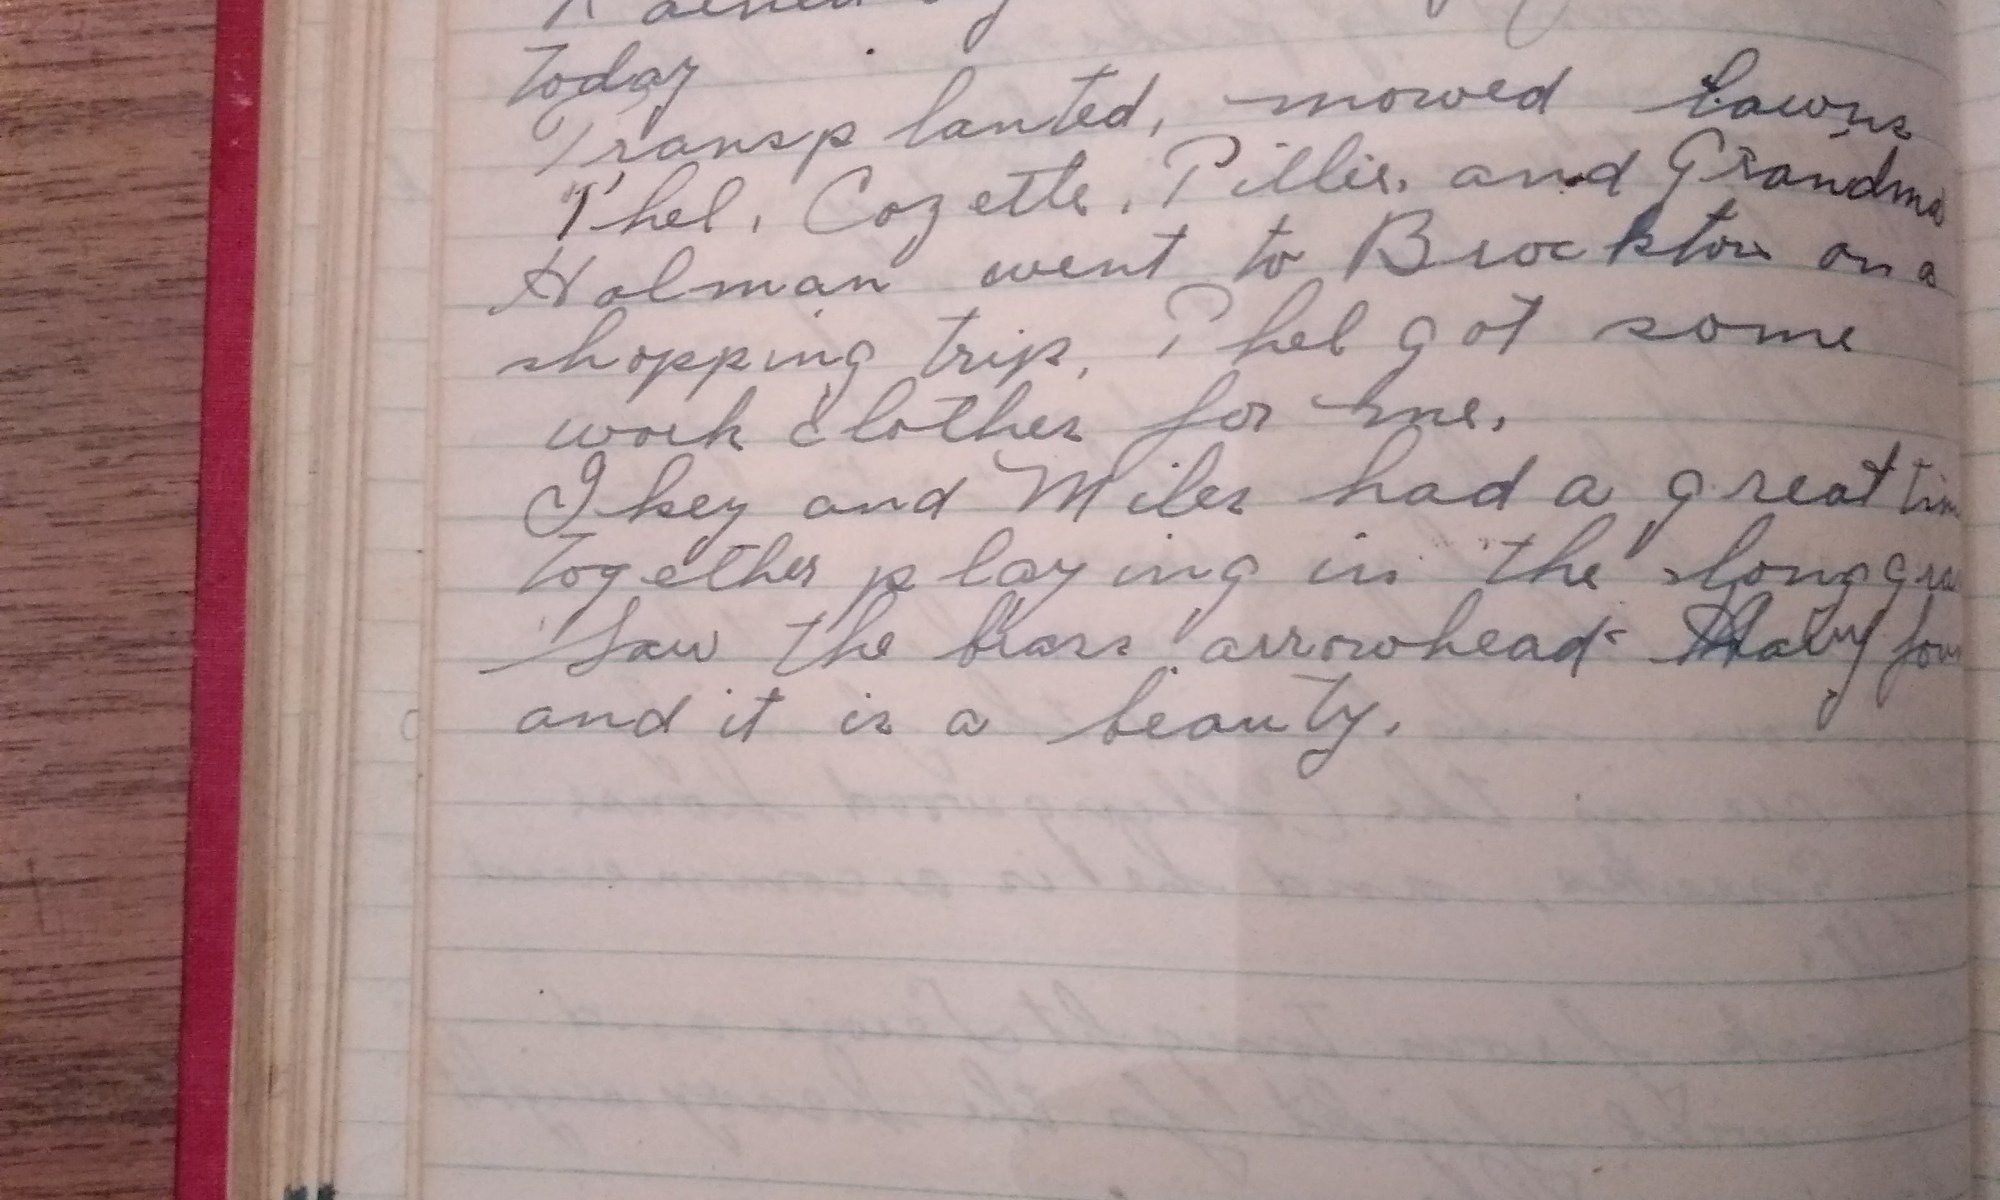 Rained
Today
Transplanted, mowed lawns
Phel, Cozette, Pillie, and Grandma
Holman went to Brockton on a
shopping trip. Phel got some
work clothes for me.
Ikey and Miles had a great tim
together playing in the long gra
Saw the brass arrowhead fou
and it is a beauty.